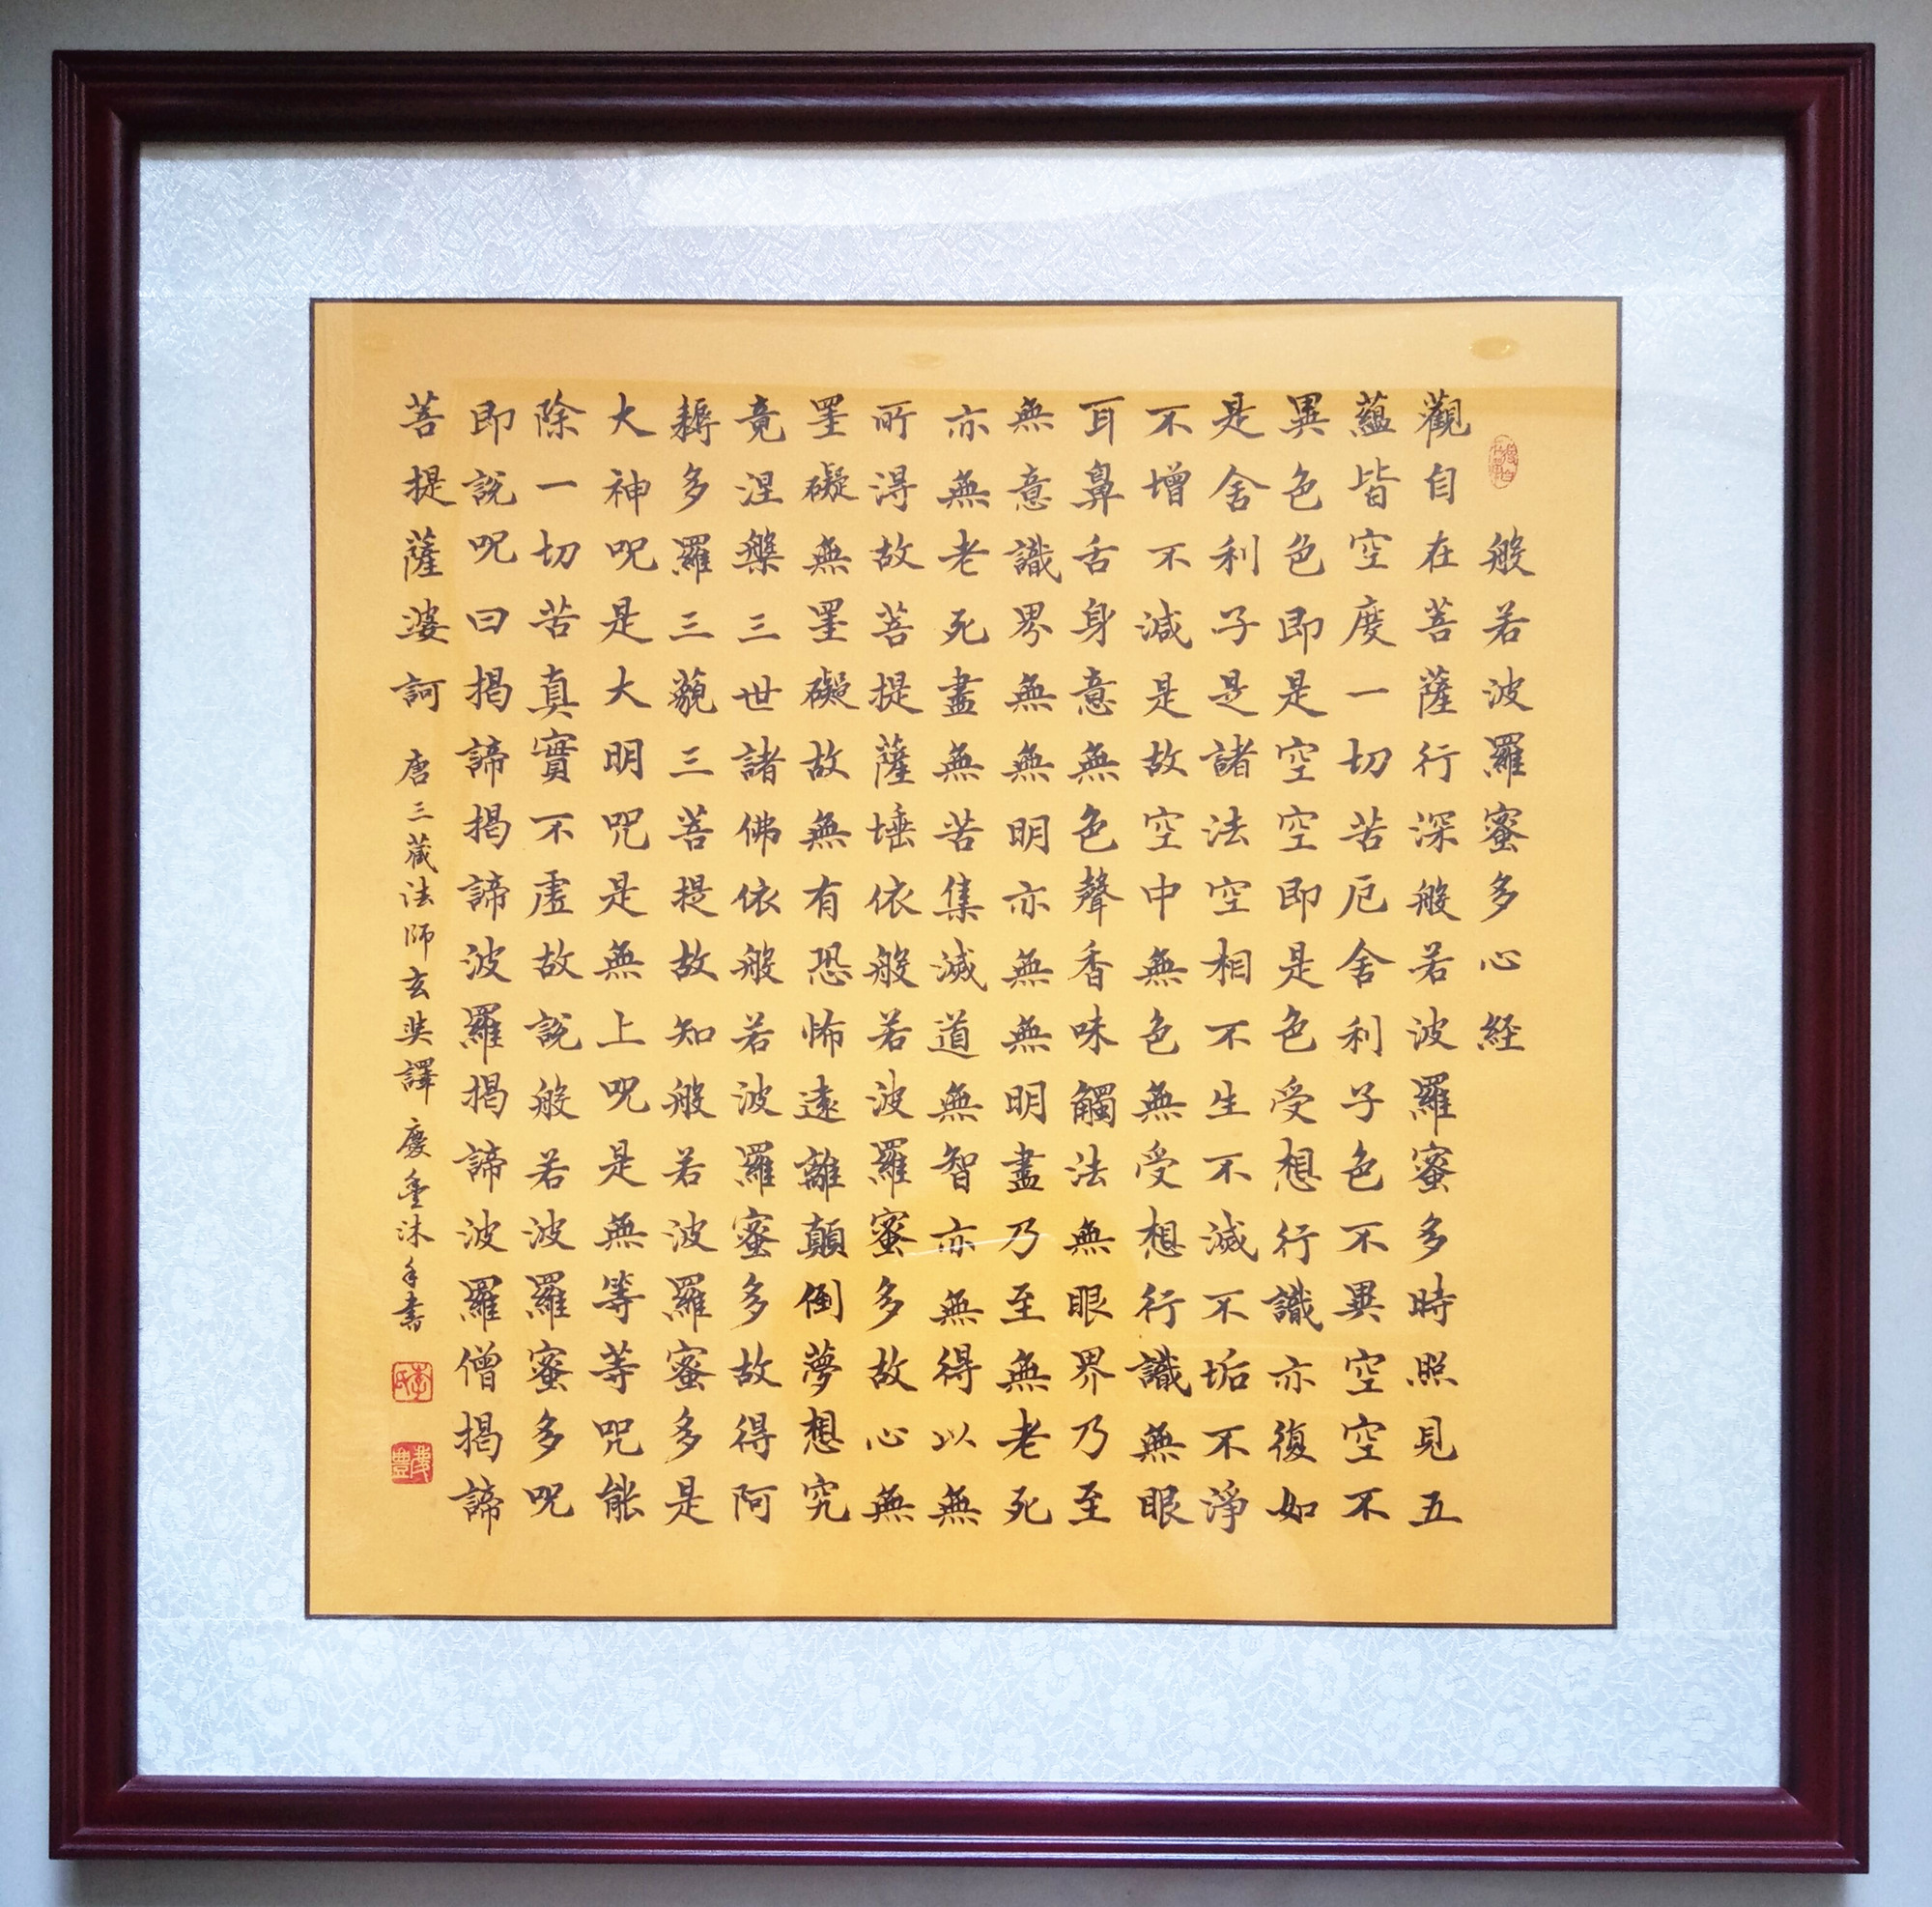 般若波羅蜜多心経
觀自在菩薩行深般若波羅蜜多時照見五
蘊皆空度一切苦厄舍利子色不異空空不
異色色即是空空即是色受想行識亦復如
是舍利子是諸法空相不生不滅不垢不淨
不增不減是故空中無色無受想行識無眼
耳鼻舌身意無色聲香味觸法無眼界乃至
無意識界無無明亦無無明盡乃至無老死
亦無老死盡無苦集滅道無智亦無得以無
所得故菩提薩埵依般若波羅蜜多故心無
罣礙無罣礙故無有恐怖遠離顛倒夢想究
竟涅槃三世諸佛依般若波羅蜜多故得阿
耨多羅三藐三菩提故知般若波羅蜜多是
大神咒是大明咒是無上咒是無等等咒能
除一切苦真實不虛故說般若波羅蜜多咒
即說咒曰揭諦揭諦波羅揭諦波羅僧揭諦
菩提薩婆訶
唐三藏法師玄奘譯 慶豐沐手書
李氏
慶豐